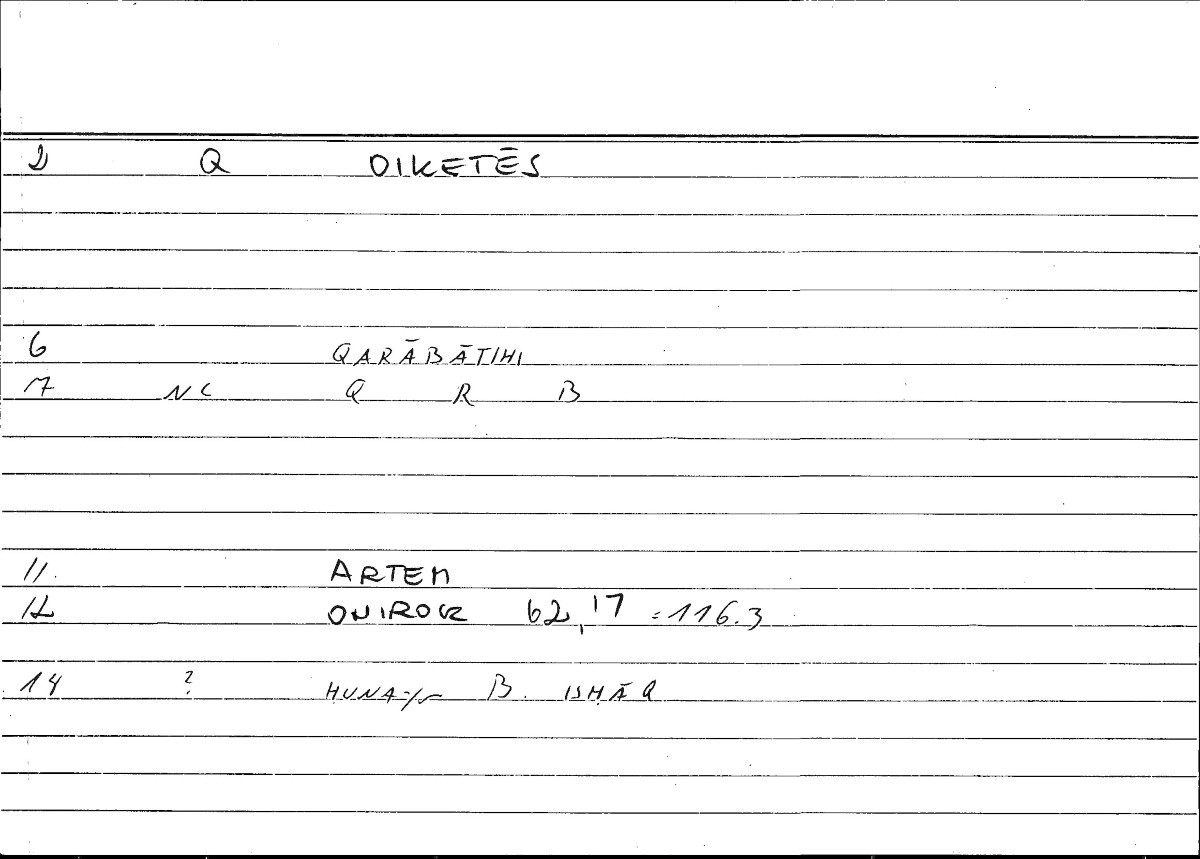 2 Q OIKETĒS
6 QARĀBĀTIHI
7 NC Q R B
11 ARTEM
12 ONIROCR 62,17 = 116.3
14 ? ḤUNAYN B. ISḤĀQ